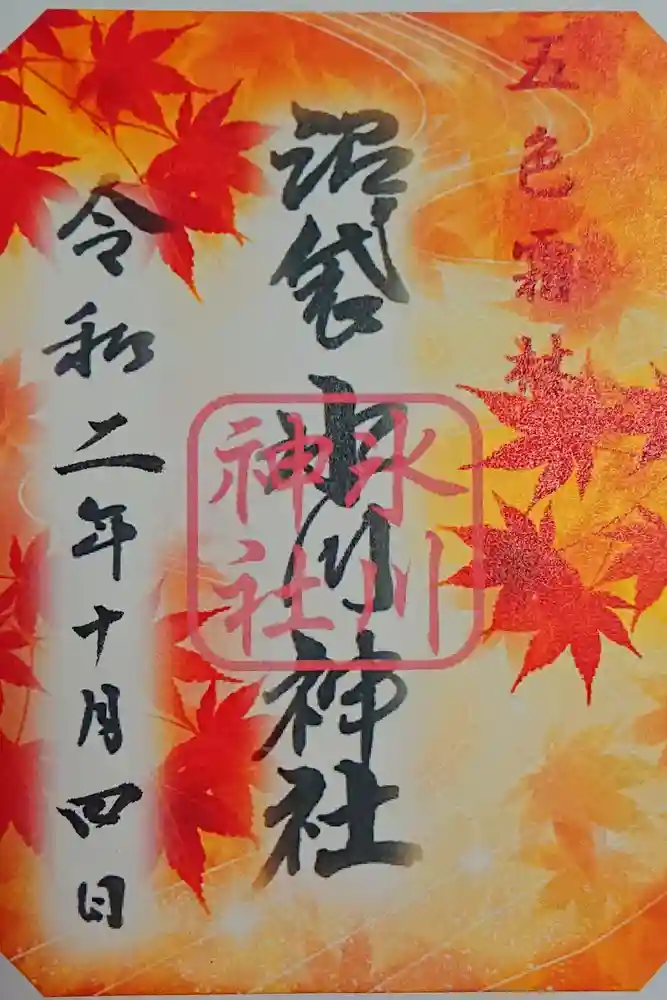 五色霜林
沼袋氷川神社
氷川
神社
令和二年十月四日